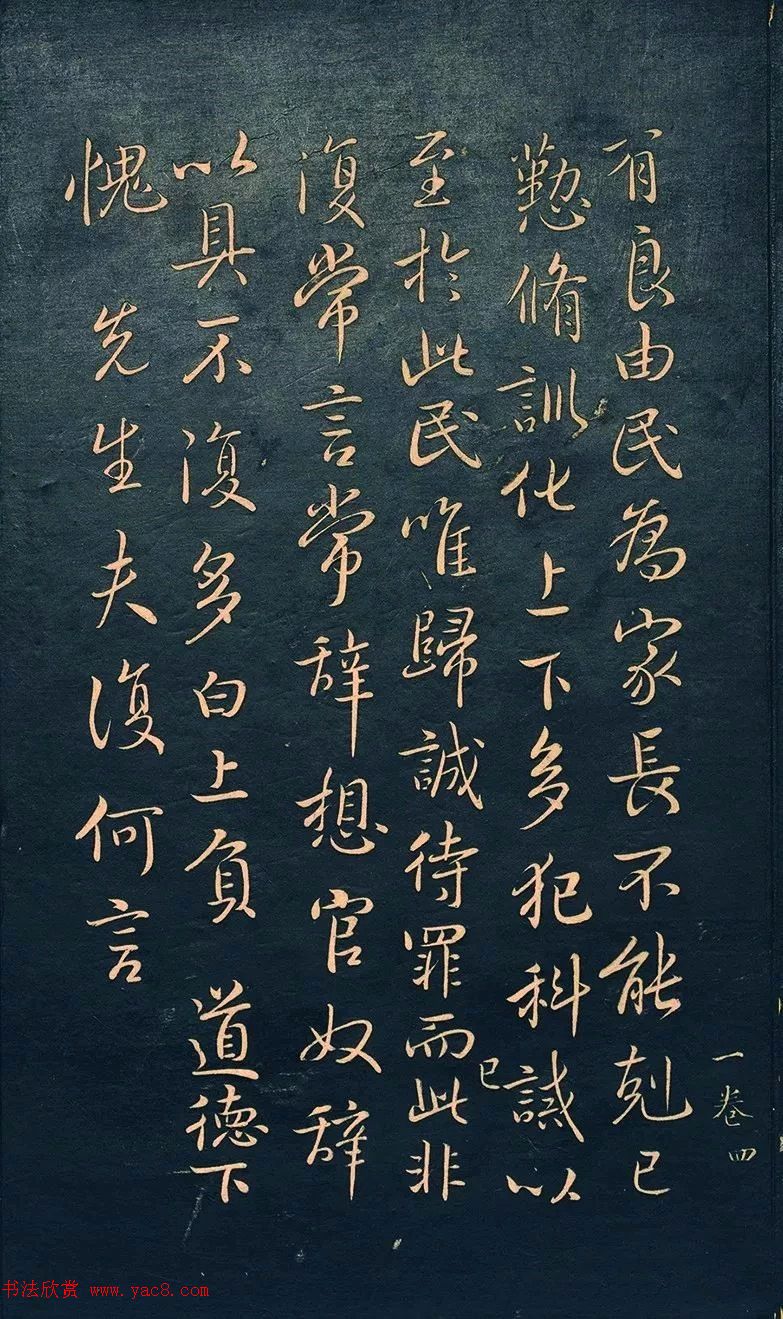 有良由民為家長不能剋己
懃脩訓化上下多犯科誡以
至於此民唯歸誠待罪而此非
復常言常辞想官奴辞
以具不復多白上負 道德下
愧 先生夫復何言
已
一卷四
书法欣赏 www.yac8.com